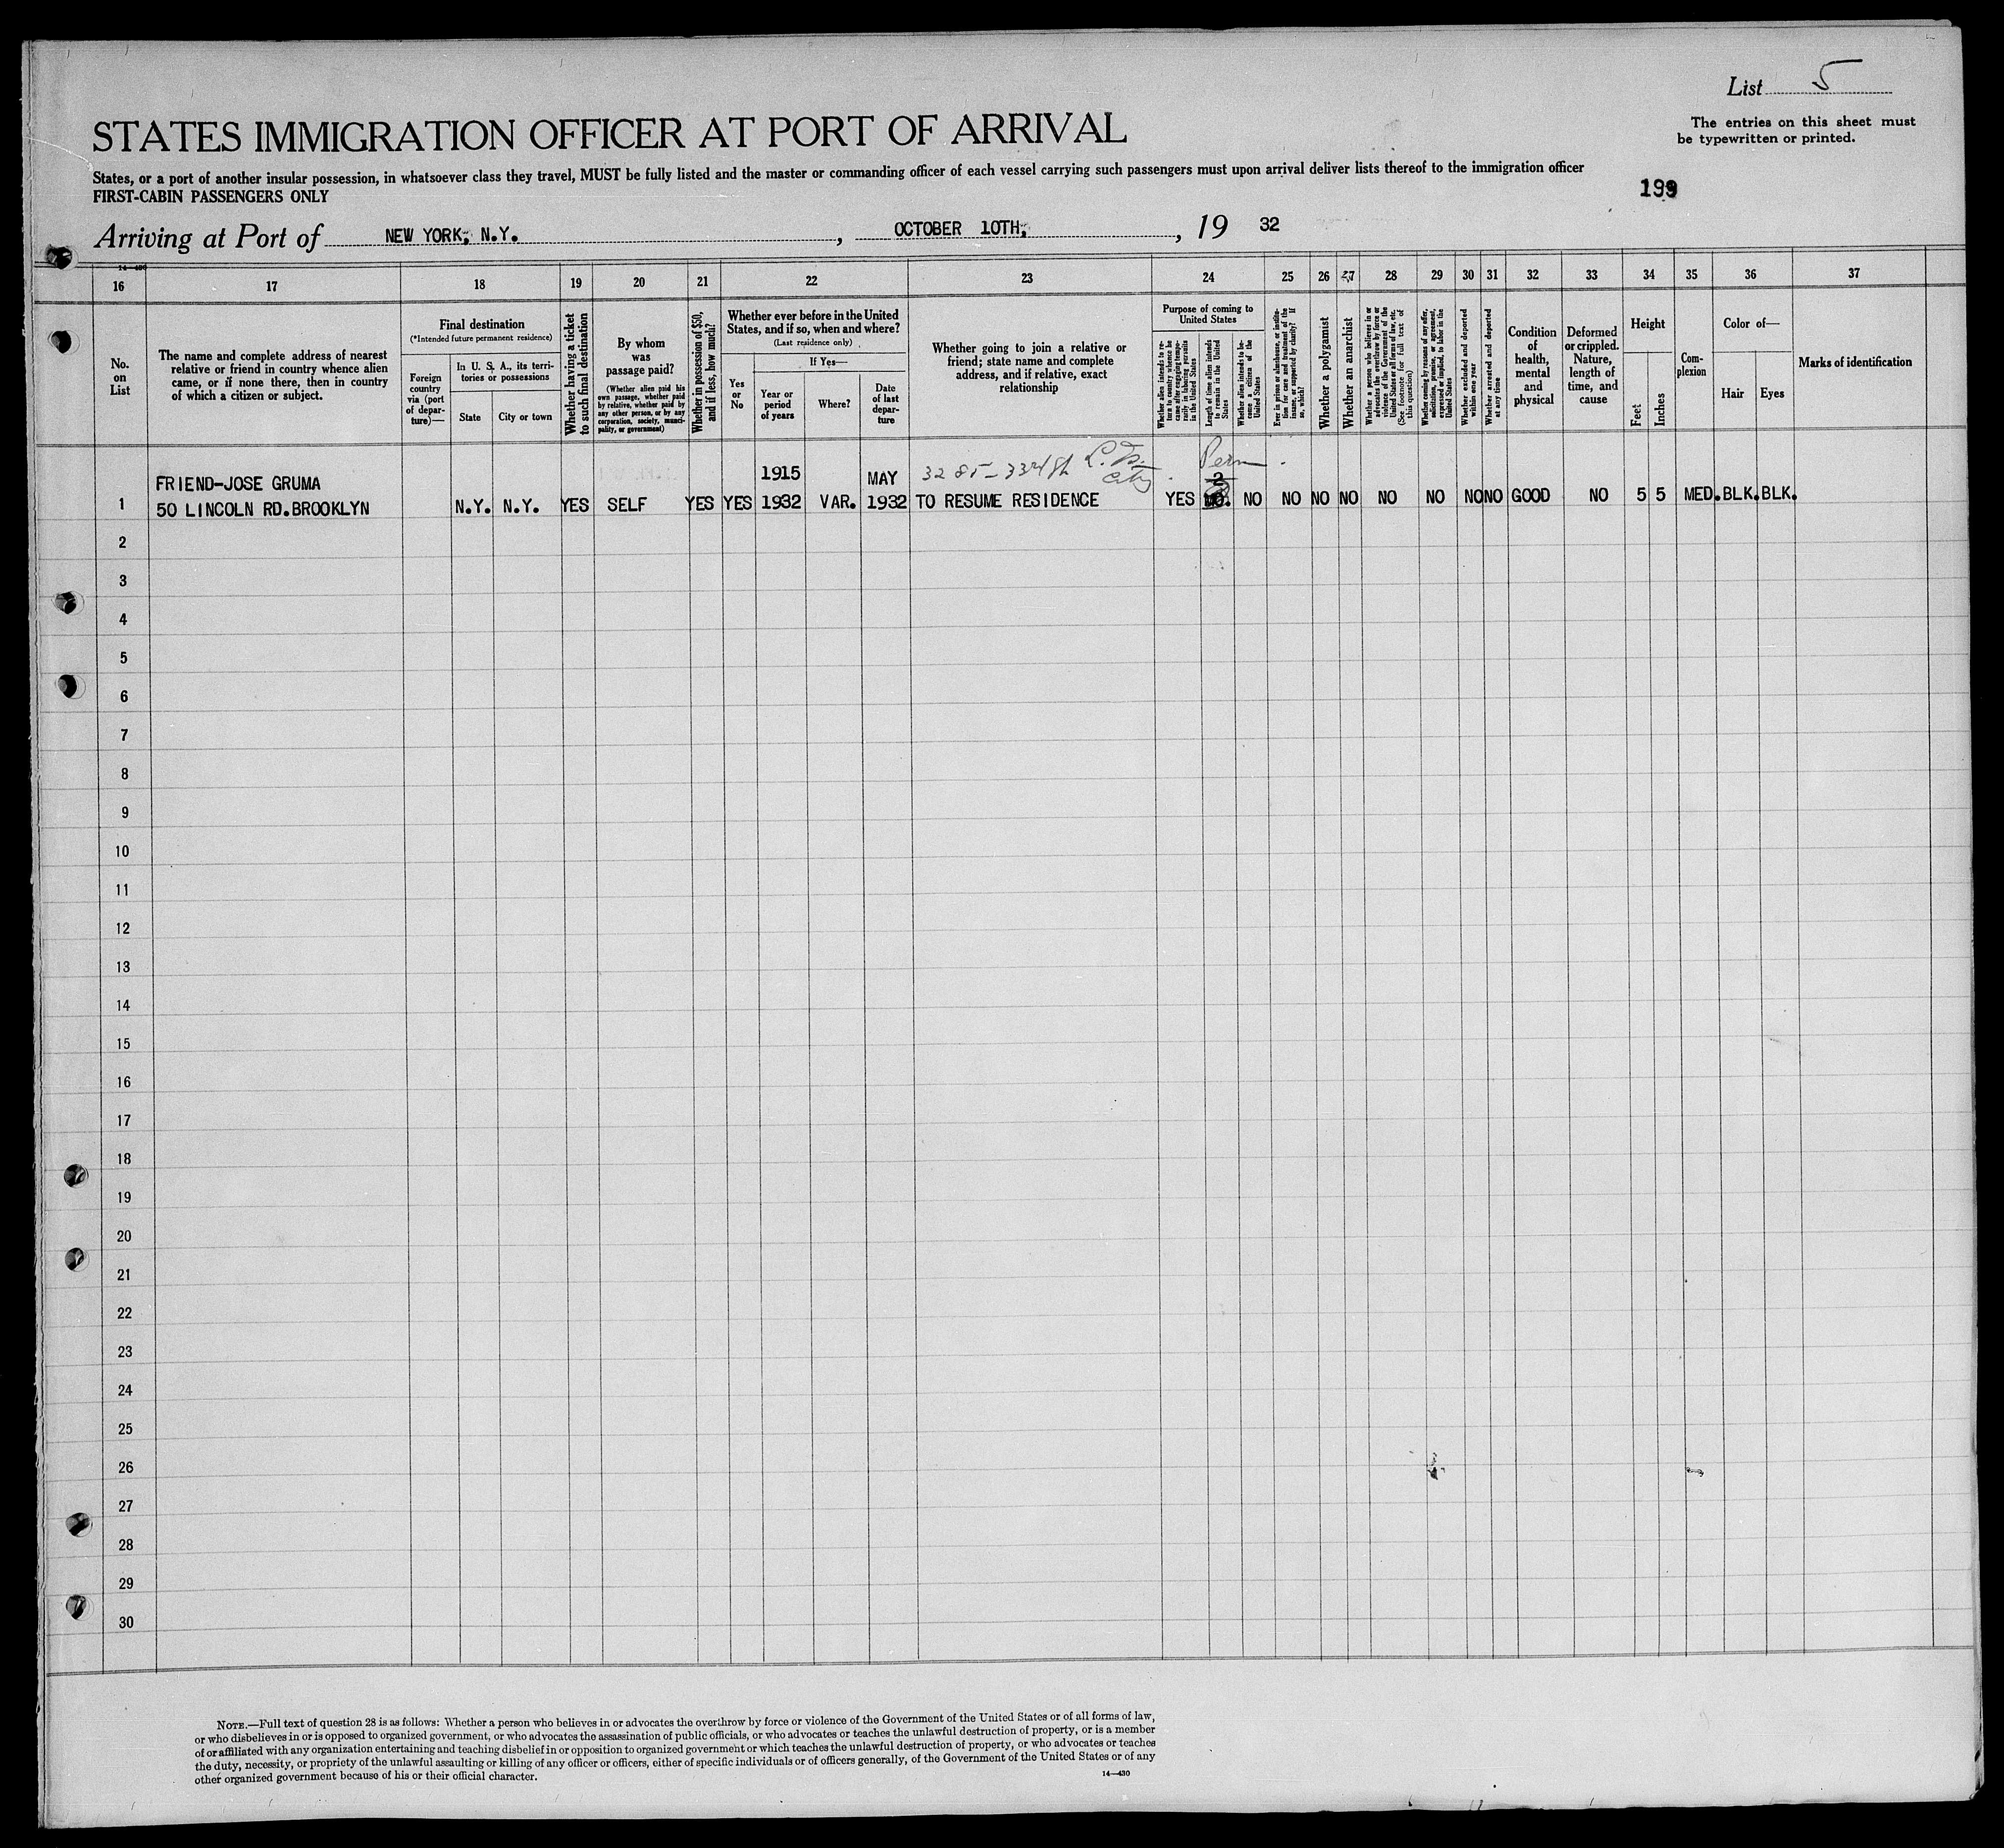 List 5
The entries on this sheet must
be typewritten or printed.
STATES IMMIGRATION OFFICER AT PORT OF ARRIVAL
States, or a port of another insular possession, in whatsoever class they travel, MUST be fully listed and the master or commanding officer of each vessel carrying such passengers must upon arrival deliver lists thereof to the immigration officer
FIRST-CABIN PASSENGERS ONLY
199
Arriving at Port of NEW YORK, N.Y. , OCTOBER 10TH, , 19 32
14—430
16 17 18 19 20 21 22 23 24 25 26 27 28 29 30 31 32 33 34 35 36 37
No. on List
The name and complete address of nearest
relative or friend in country whence alien
came, or if none there, then in country
of which a citizen or subject.
Final destination
(*Intended future permanent residence)
Foreign country via (port of depar-ture)—
In U. S. A., its terri-
tories or possessions
State
City or town
Whether having a ticket
to such final destination
By whom
was
passage paid?
(Whether alien paid his
own passage, whether paid
by relative, whether paid by
any other person, or by any
corporation, society, munici-
pality, or government)
Whether in possession of $50,
and if less, how much?
Whether ever before in the United
States, and if so, when and where?
(Last residence only)
Yes or No
If Yes—
Year or period of years
Where?
Date of last depar-ture
Whether going to join a relative or
friend; state name and complete
address, and if relative, exact
relationship
Purpose of coming to
United States
Whether alien intends to re-
turn to country whence he
came after engaging tempo-
rarily in laboring pursuits
in the United States
Length of time alien intends
to remain in the United
States
Whether alien intends to be-
come a citizen of the
United States
Ever in prison or almshouse, or institu-
tion for care and treatment of the
insane, or supported by charity? If
so, which?
Whether a polygamist
Whether an anarchist
Whether a person who believes in or
advocates the overthrow by force or
violence of the Government of the
United States or all forms of law, etc.
(See footnote for full text of
this question)
Whether coming by reasons of any offer,
solicitation, promise, or agreement,
expressed or implied, to labor in the
United States
Whether excluded and deported
within one year
Whether arrested and deported
at any time
Condition
of
health,
mental
and
physical
Deformed
or crippled.
Nature,
length of
time, and
cause
Height
Feet
Inches
Com-
plexion
Color of—
Hair
Eyes
Marks of identification
3285-33rd St L.I. City Perm
FRIEND-JOSE GRUMA 1915 MAY 2
1 50 LINCOLN RD.BROOKLYN N.Y. N.Y. YES SELF YES YES 1932 VAR. 1932 TO RESUME RESIDENCE YES MO. NO NO NO NO NO NO NO NO GOOD NO 5 5 MED. BLK. BLK.
2
3
4
5
6
7
8
9
10
11
12
13
14
15
16
17
18
19
20
21
22
23
24
25
26
27
28
29
30
NOTE.—Full text of question 28 is as follows: Whether a person who believes in or advocates the overthrow by force or violence of the Government of the United States or of all forms of law,
or who disbelieves in or is opposed to organized government, or who advocates the assassination of public officials, or who advocates or teaches the unlawful destruction of property, or is a member
of or affiliated with any organization entertaining and teaching disbelief in or opposition to organized government or which teaches the unlawful destruction of property, or who advocates or teaches
the duty, necessity, or propriety of the unlawful assaulting or killing of any officer or officers, either of specific individuals or of officers generally, of the Government of the United States or of any
other organized government because of his or their official character.
14—430